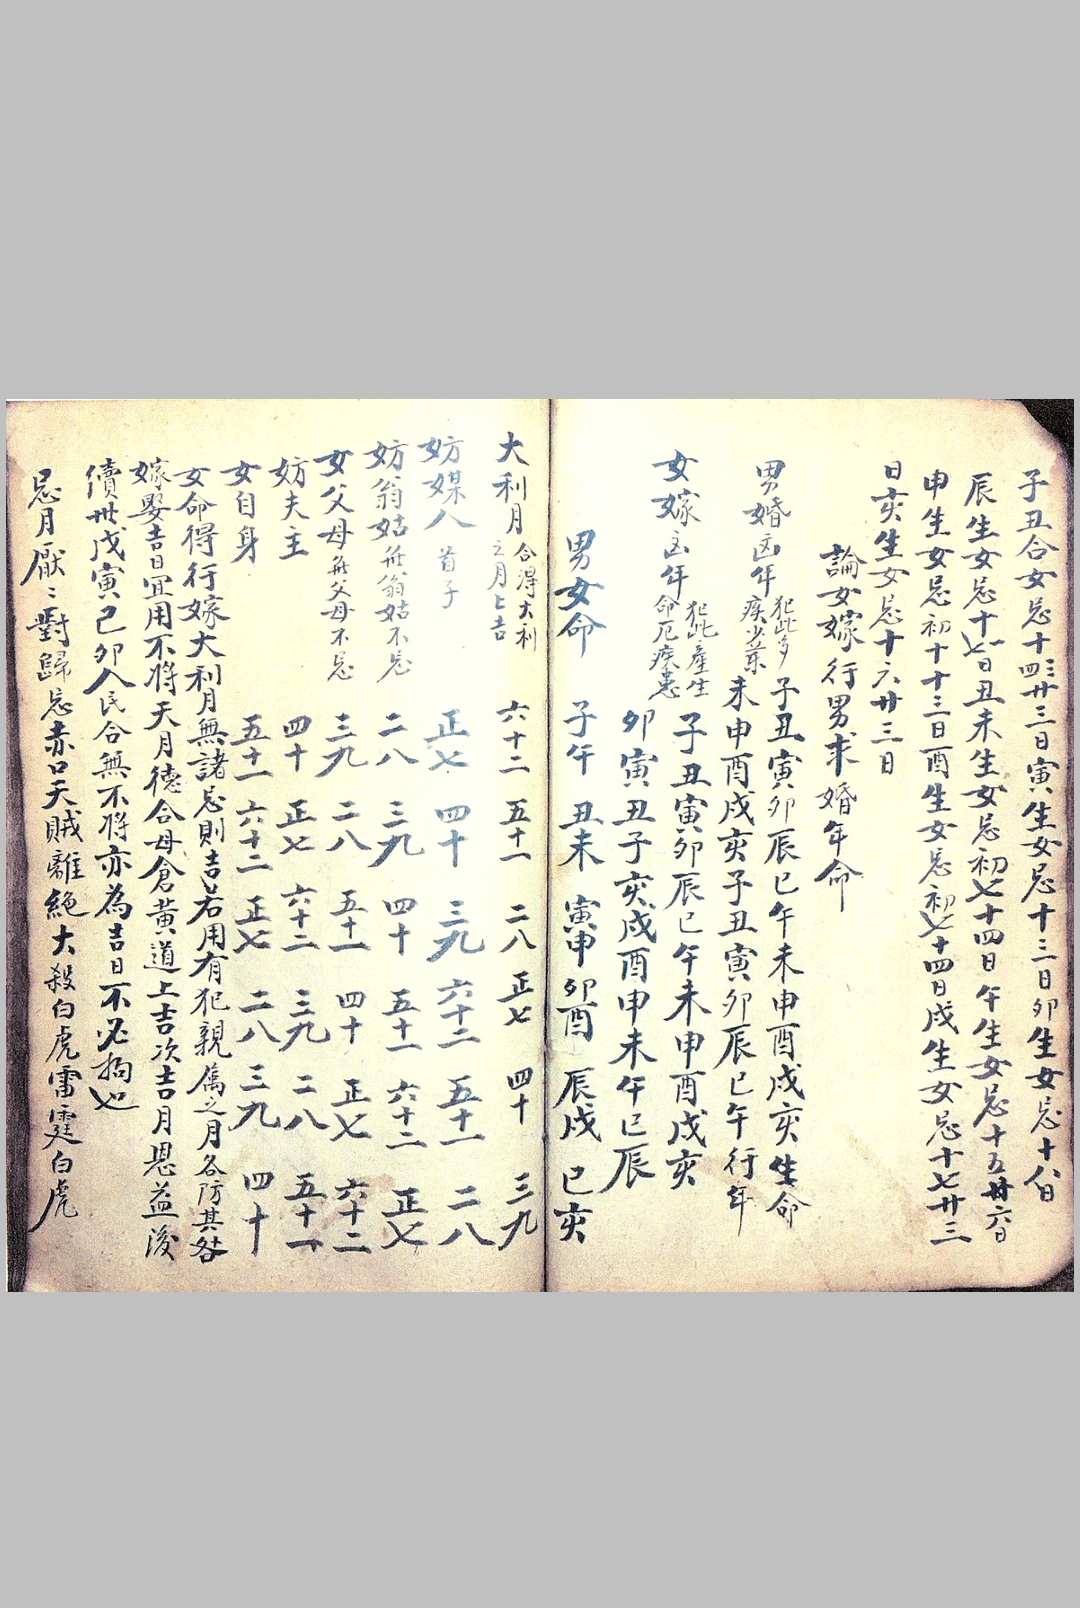 子丑合女忌十四廿三日寅生女忌十三日卯生女忌十八日
辰生女忌十七日丑未生女忌初七十四日午生女忌十五廿六日
申生女忌初十十三日酉生女忌初七十四日戌生女忌十七廿三
日亥生女忌十六廿三日
論女嫁行男求婚年命
男婚凶年 犯此多疾少業 子丑寅卯辰巳午未申酉戌亥生命
未申酉戌亥子丑寅卯辰巳午行年
女嫁凶年 犯此產生命厄疾患 子丑寅卯辰巳午未申酉戌亥
卯寅丑子亥戌酉申未午巳辰
男女命 子午 丑未 寅申 卯酉 辰戌 巳亥
大利月 合得大利之月上吉 六十二 五十一 二八 正七 四十 三九
妨媒人 首子 正七 四十 三九 六十二 五十一 二八
妨翁姑 無翁姑不忌 二八 三九 四十 五十一 六十二 正七
女父母 無父母不忌 三九 二八 五十一 四十 正七 六十二
妨夫主 四十 正七 六十二 三九 二八 五十一
女自身 五十一 六十二 正七 二八 三九 四十
女命得行嫁大利月無諸忌則吉若用有犯親属之月各防其咎
嫁娶吉日宜用不將天月德合母倉黃道上吉次吉月恩益後
續世戊寅己卯人民合無不將亦為吉日不必拘也
忌月厭〻對歸忌赤口天賊離絕大殺白虎雷霆白虎